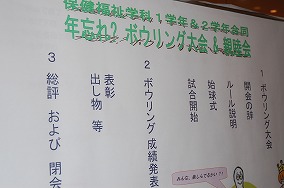 保健福祉学科1学年&2学年合同
年忘れ? ボウリング大会 & 親睦会
1 ボウリング大会
開会の辞
ルール説明
始球式
試合開始
2 ボウリング 成績発表
表彰
出し物 等
3 総評 および 閉会
みんな、楽しんでるかい?!